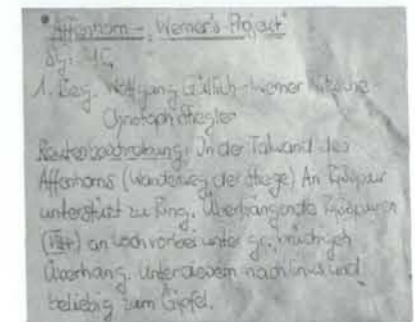 "Affenhorn - "Werner's Project"
Sg: 1G
1. Beg. Wolfgang Güllich - Werner
Christoph Stiegler
Routenbeschreibung: In der Talwand des
Affenhorns (Wanderweg der Stiege) An Rißspur
unterstützt zu Ring. Überhängende Rißspuren
an Loch vorbei unter gr.
Überhang. Unter diesem nach links und
beliebig zum Gipfel.